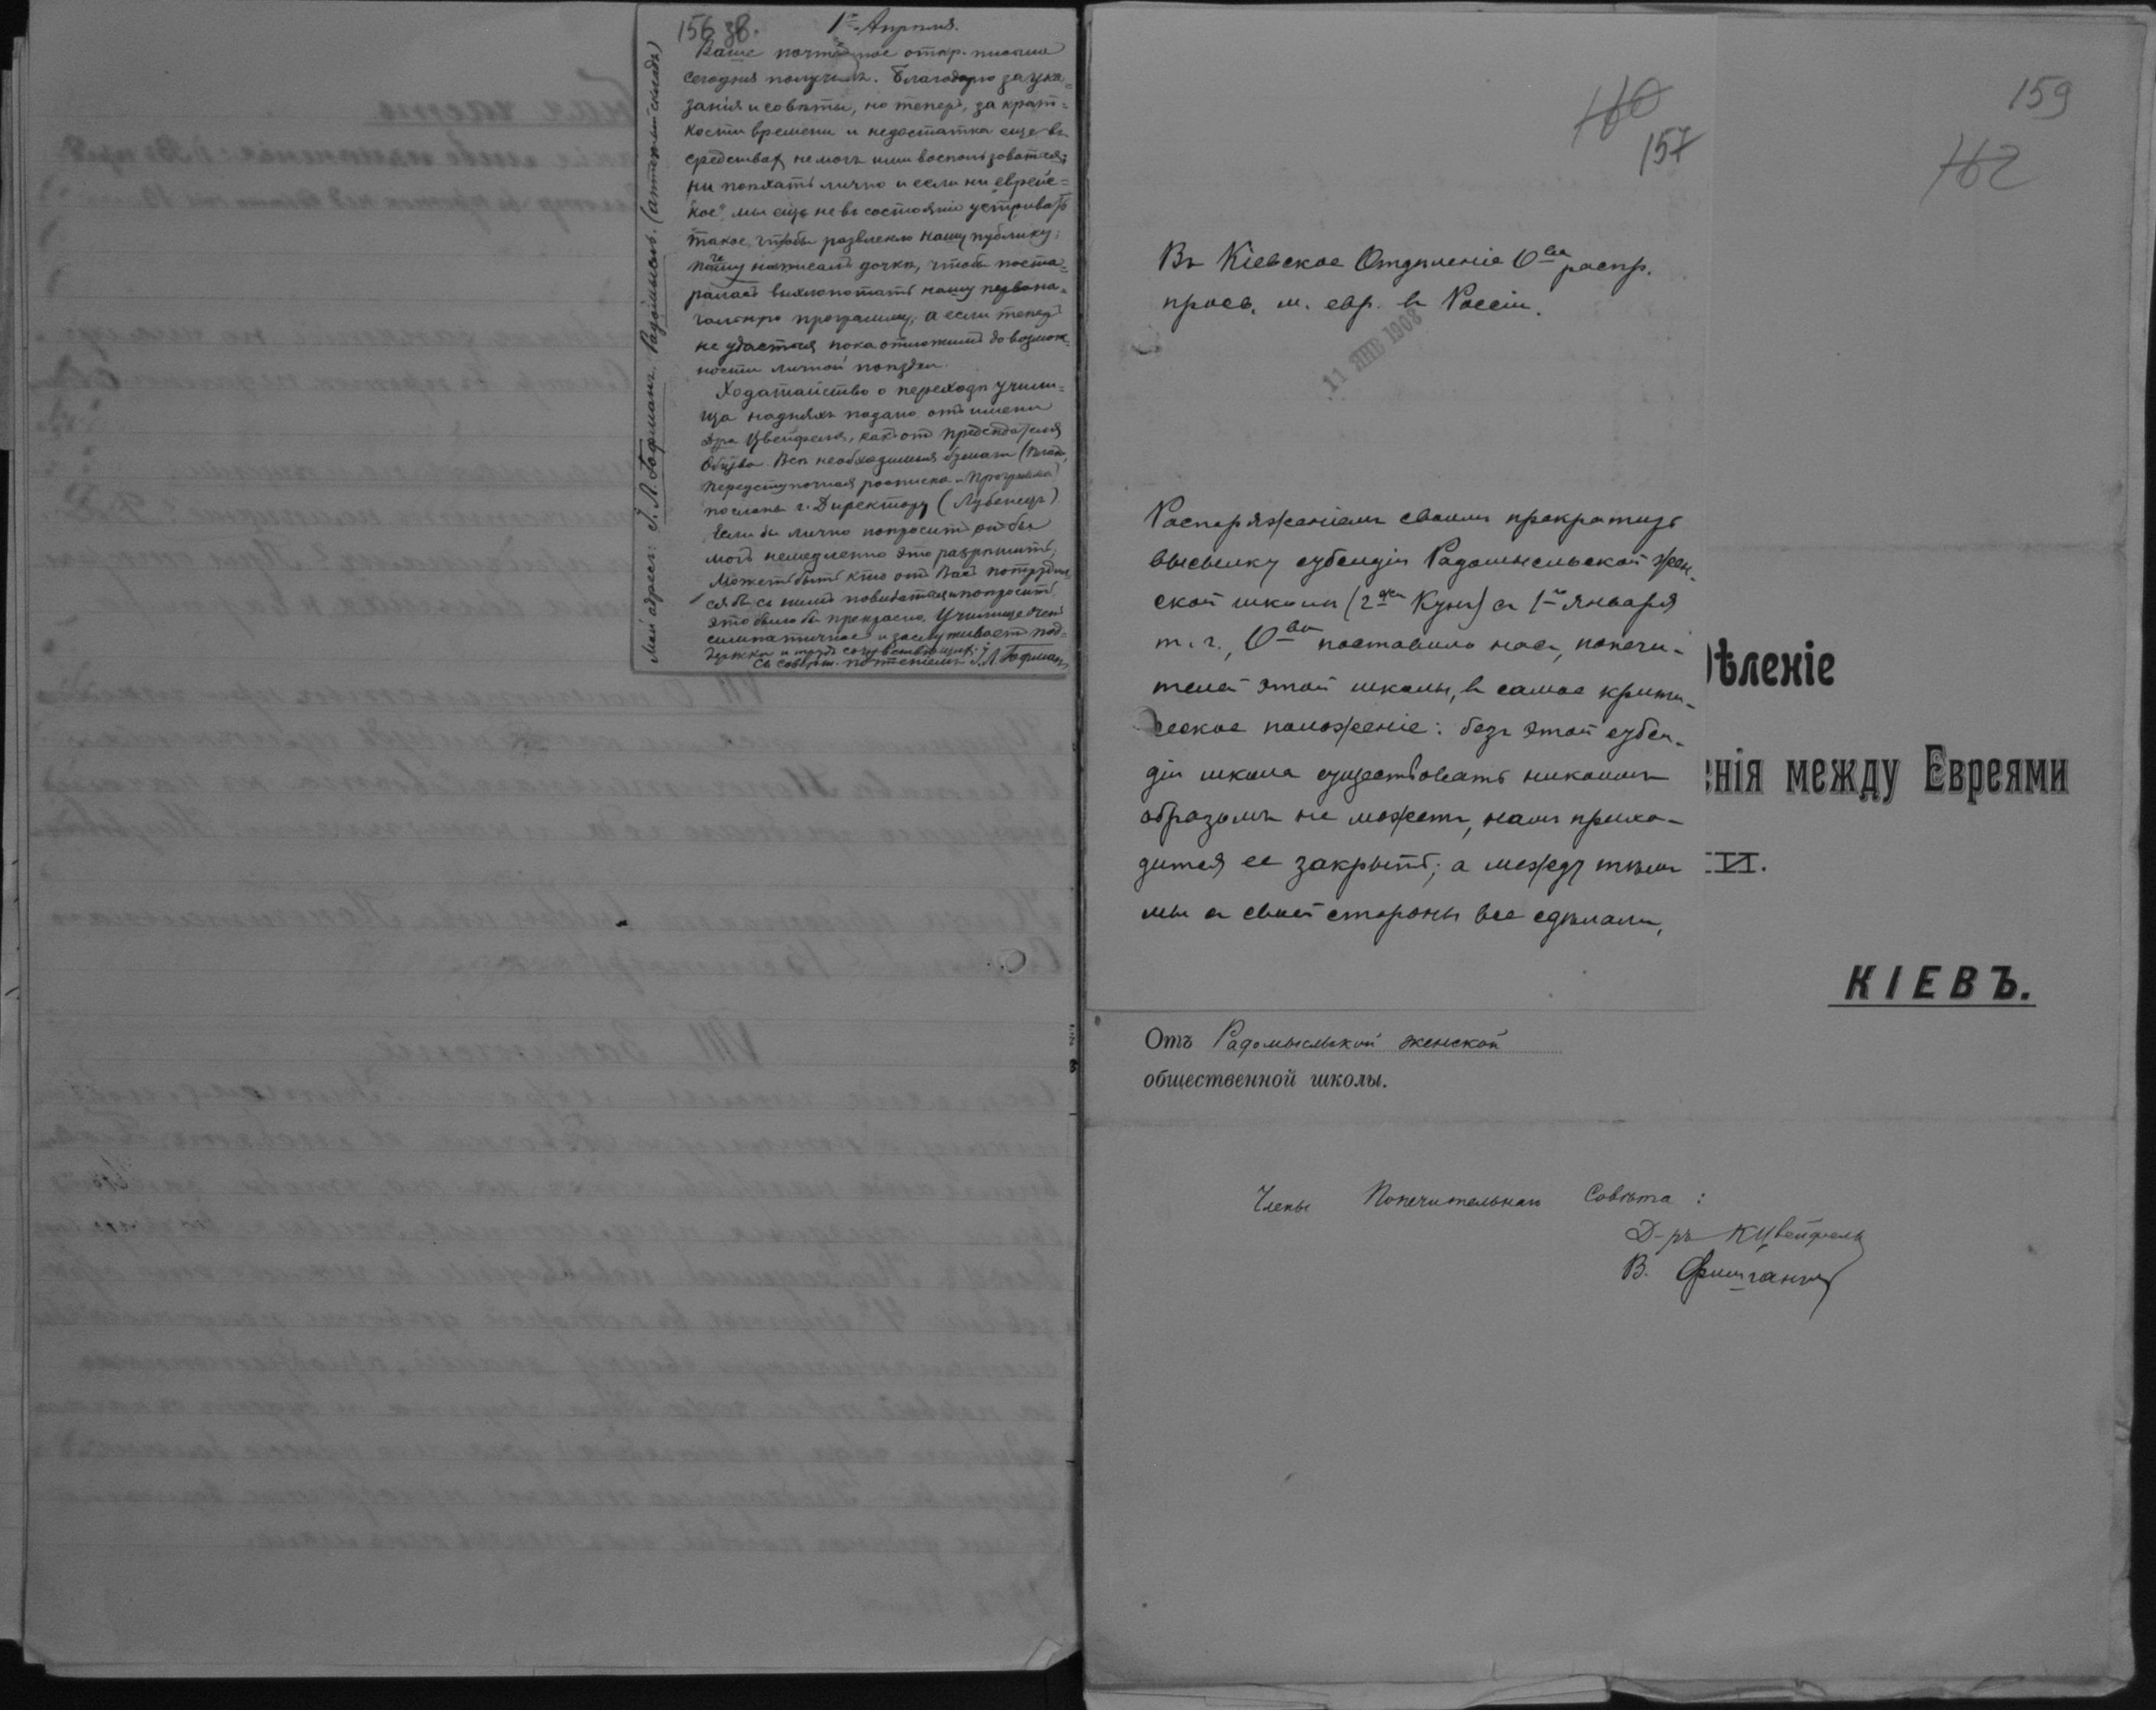 156 зв.
1го Апрѣля.
Ваше почтенное откр. письмо
сегодня получилъ. Благодарю за ука=
занія и совѣты, но теперь, за крат=
кости времени и недостатка еще въ
средствах не могъ ими воспользоваться;
ни поѣхать лично и если ни еврейс=
кое, мы еще не въ состояніи устривать
такое, чтобы развлекло нашу публику;
пошу написалъ дочкѣ, чтобы поста=
ралась выхлопотать нашу первона=
чальную программу, а если теперь
не удастся пока отложимъ до возмож=
ности личной поѣздки.
Ходатайство о переходѣ учили=
ща надняхъ подано отъ имени
Д-ра Цвейфеля, какъ от предсѣдателя
Общ-ва. Всѣ необходимыя бумаги (План,
передступочная росписка и Программа)
посланы г. Директору (Лубенецъ)
Если бы лично попросить он бы
могъ немедленно это разрѣшить;
Можетъ быть кто отъ Васъ потрудил
ся бы съ нимъ повидаться и попросить
это было бы прекрасно. Училище очень
симпатичное и заслуживаетъ под=
держки и труда сочувствующих
Съ соверш. почтеніемъ І. Л. Гофманъ
Мой адресъ: І. Л. Гофманъ, Радомысль. (аптечный складъ)
160
157
Въ Кіевское Отдѣленіе О-ва распр.
просв. м. евр. в Россіи.
11 ЯНВ 1908
Распоряженіемъ своимъ прекратить
высылку субсидіи Радомысльской жен-
ской школы (2ой Кунъ) съ 1го января
т. г., О-во поставило насъ, попечи-
телей этой школы, въ самое крити-
ческое положеніе: безъ этой субси-
діи школа существовать никоимъ
образомъ не можетъ, намъ прихо-
дится ее закрыть; а между тѣмъ
мы съ своей стороны все сдѣлали,
159
162
ѣленіе
нія между Евреями
VI.
КІЕВЪ.
Отъ Радомысльской женской
общественной школы.
Члены Попечительнаго Совѣта:
Д-ръ К Цвейфель
В. Фишганг